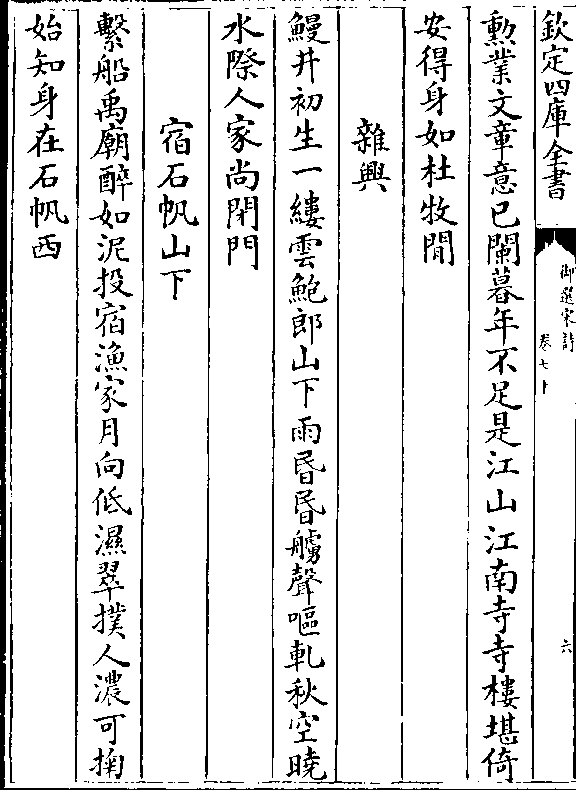 欽定四庫全書
御選宋詩
卷七十
六
勲業文章意已闌暮年不足是江山江南寺寺樓堪倚
安得身如杜牧閒
雜興
鰻井初生一縷雲鮑郎山下雨昏昏艣聲嘔軋秋空曉
水際人家尚閉門
宿石帆山下
繫船禹廟醉如泥投宿漁家月向低濕翠撲人濃可掬
始知身在石帆西